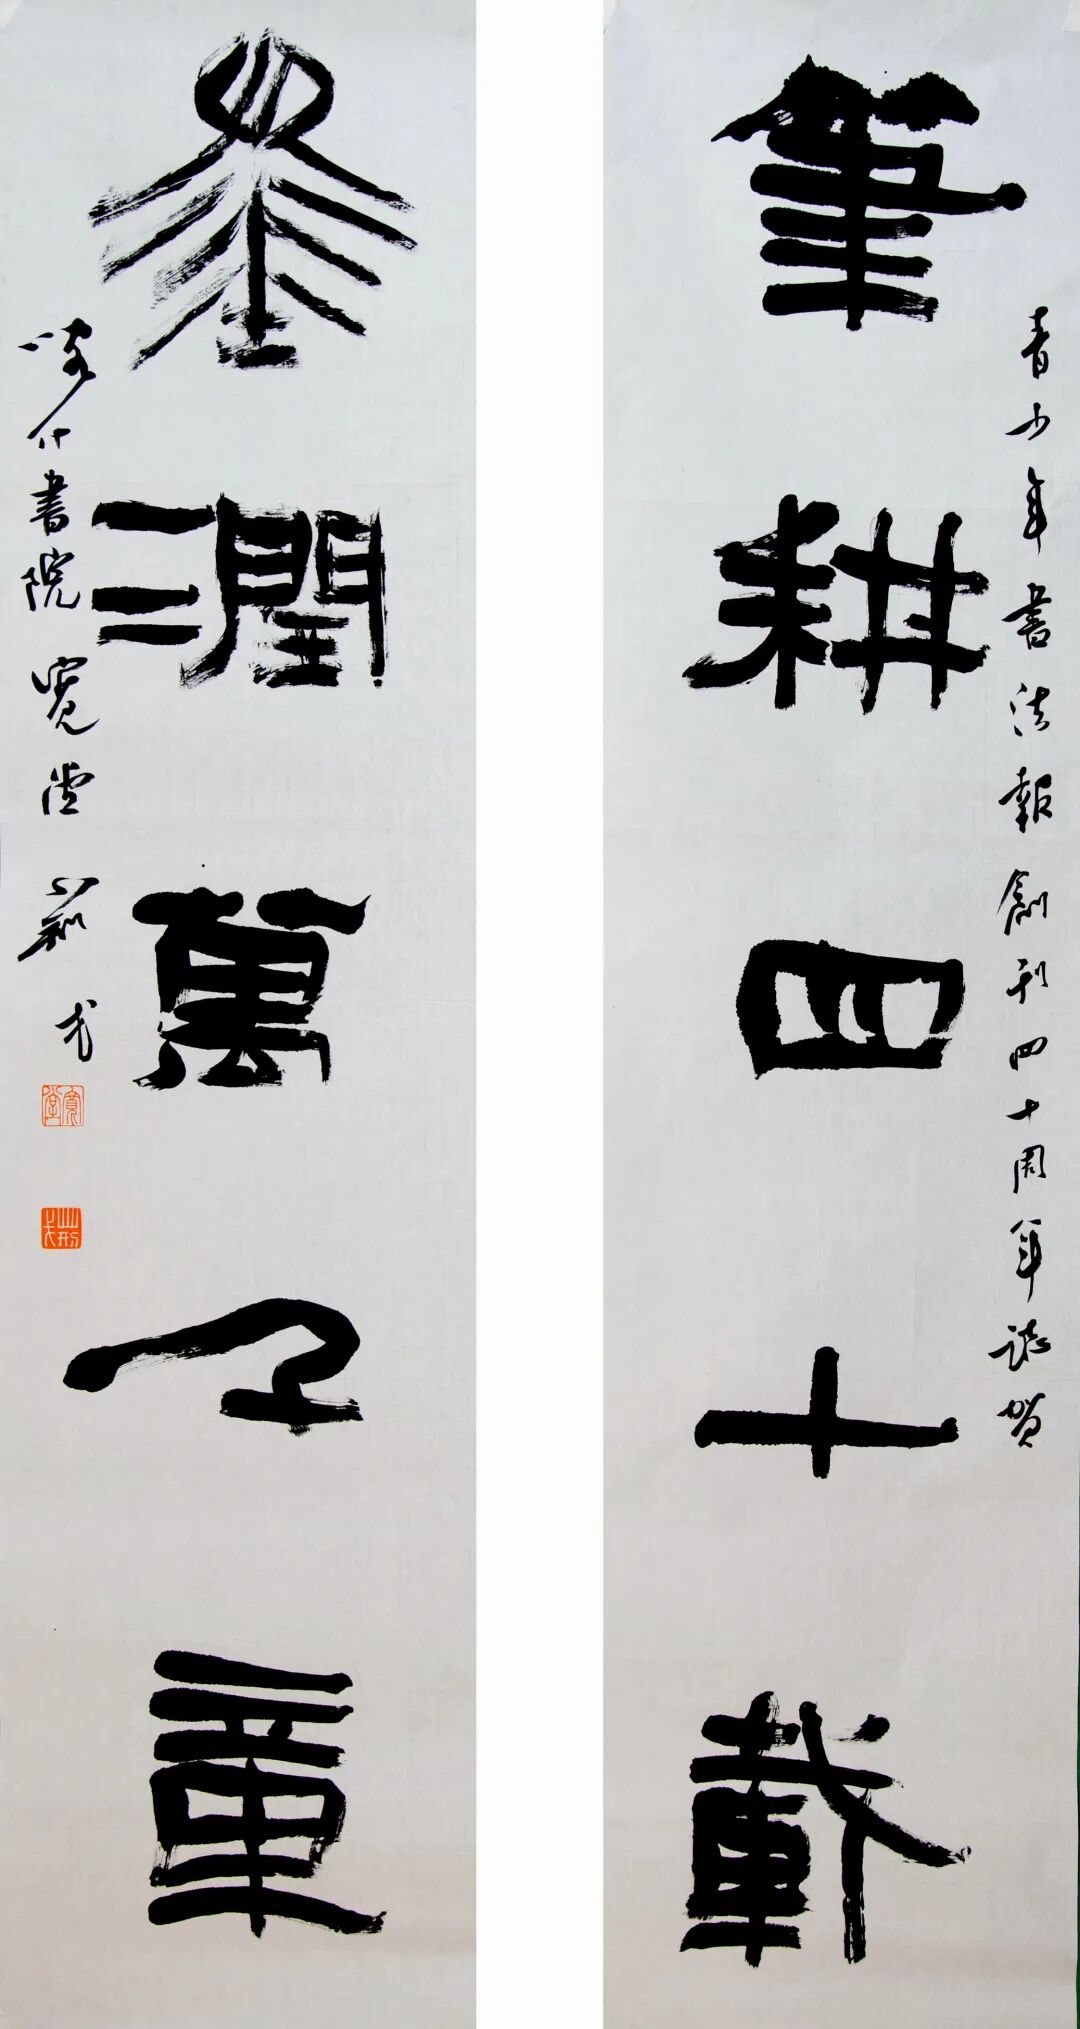 筆耕四十載
青少年書法報創刊四十周年誌賀
墨潤萬千童
喀什書院寬堂
寬堂